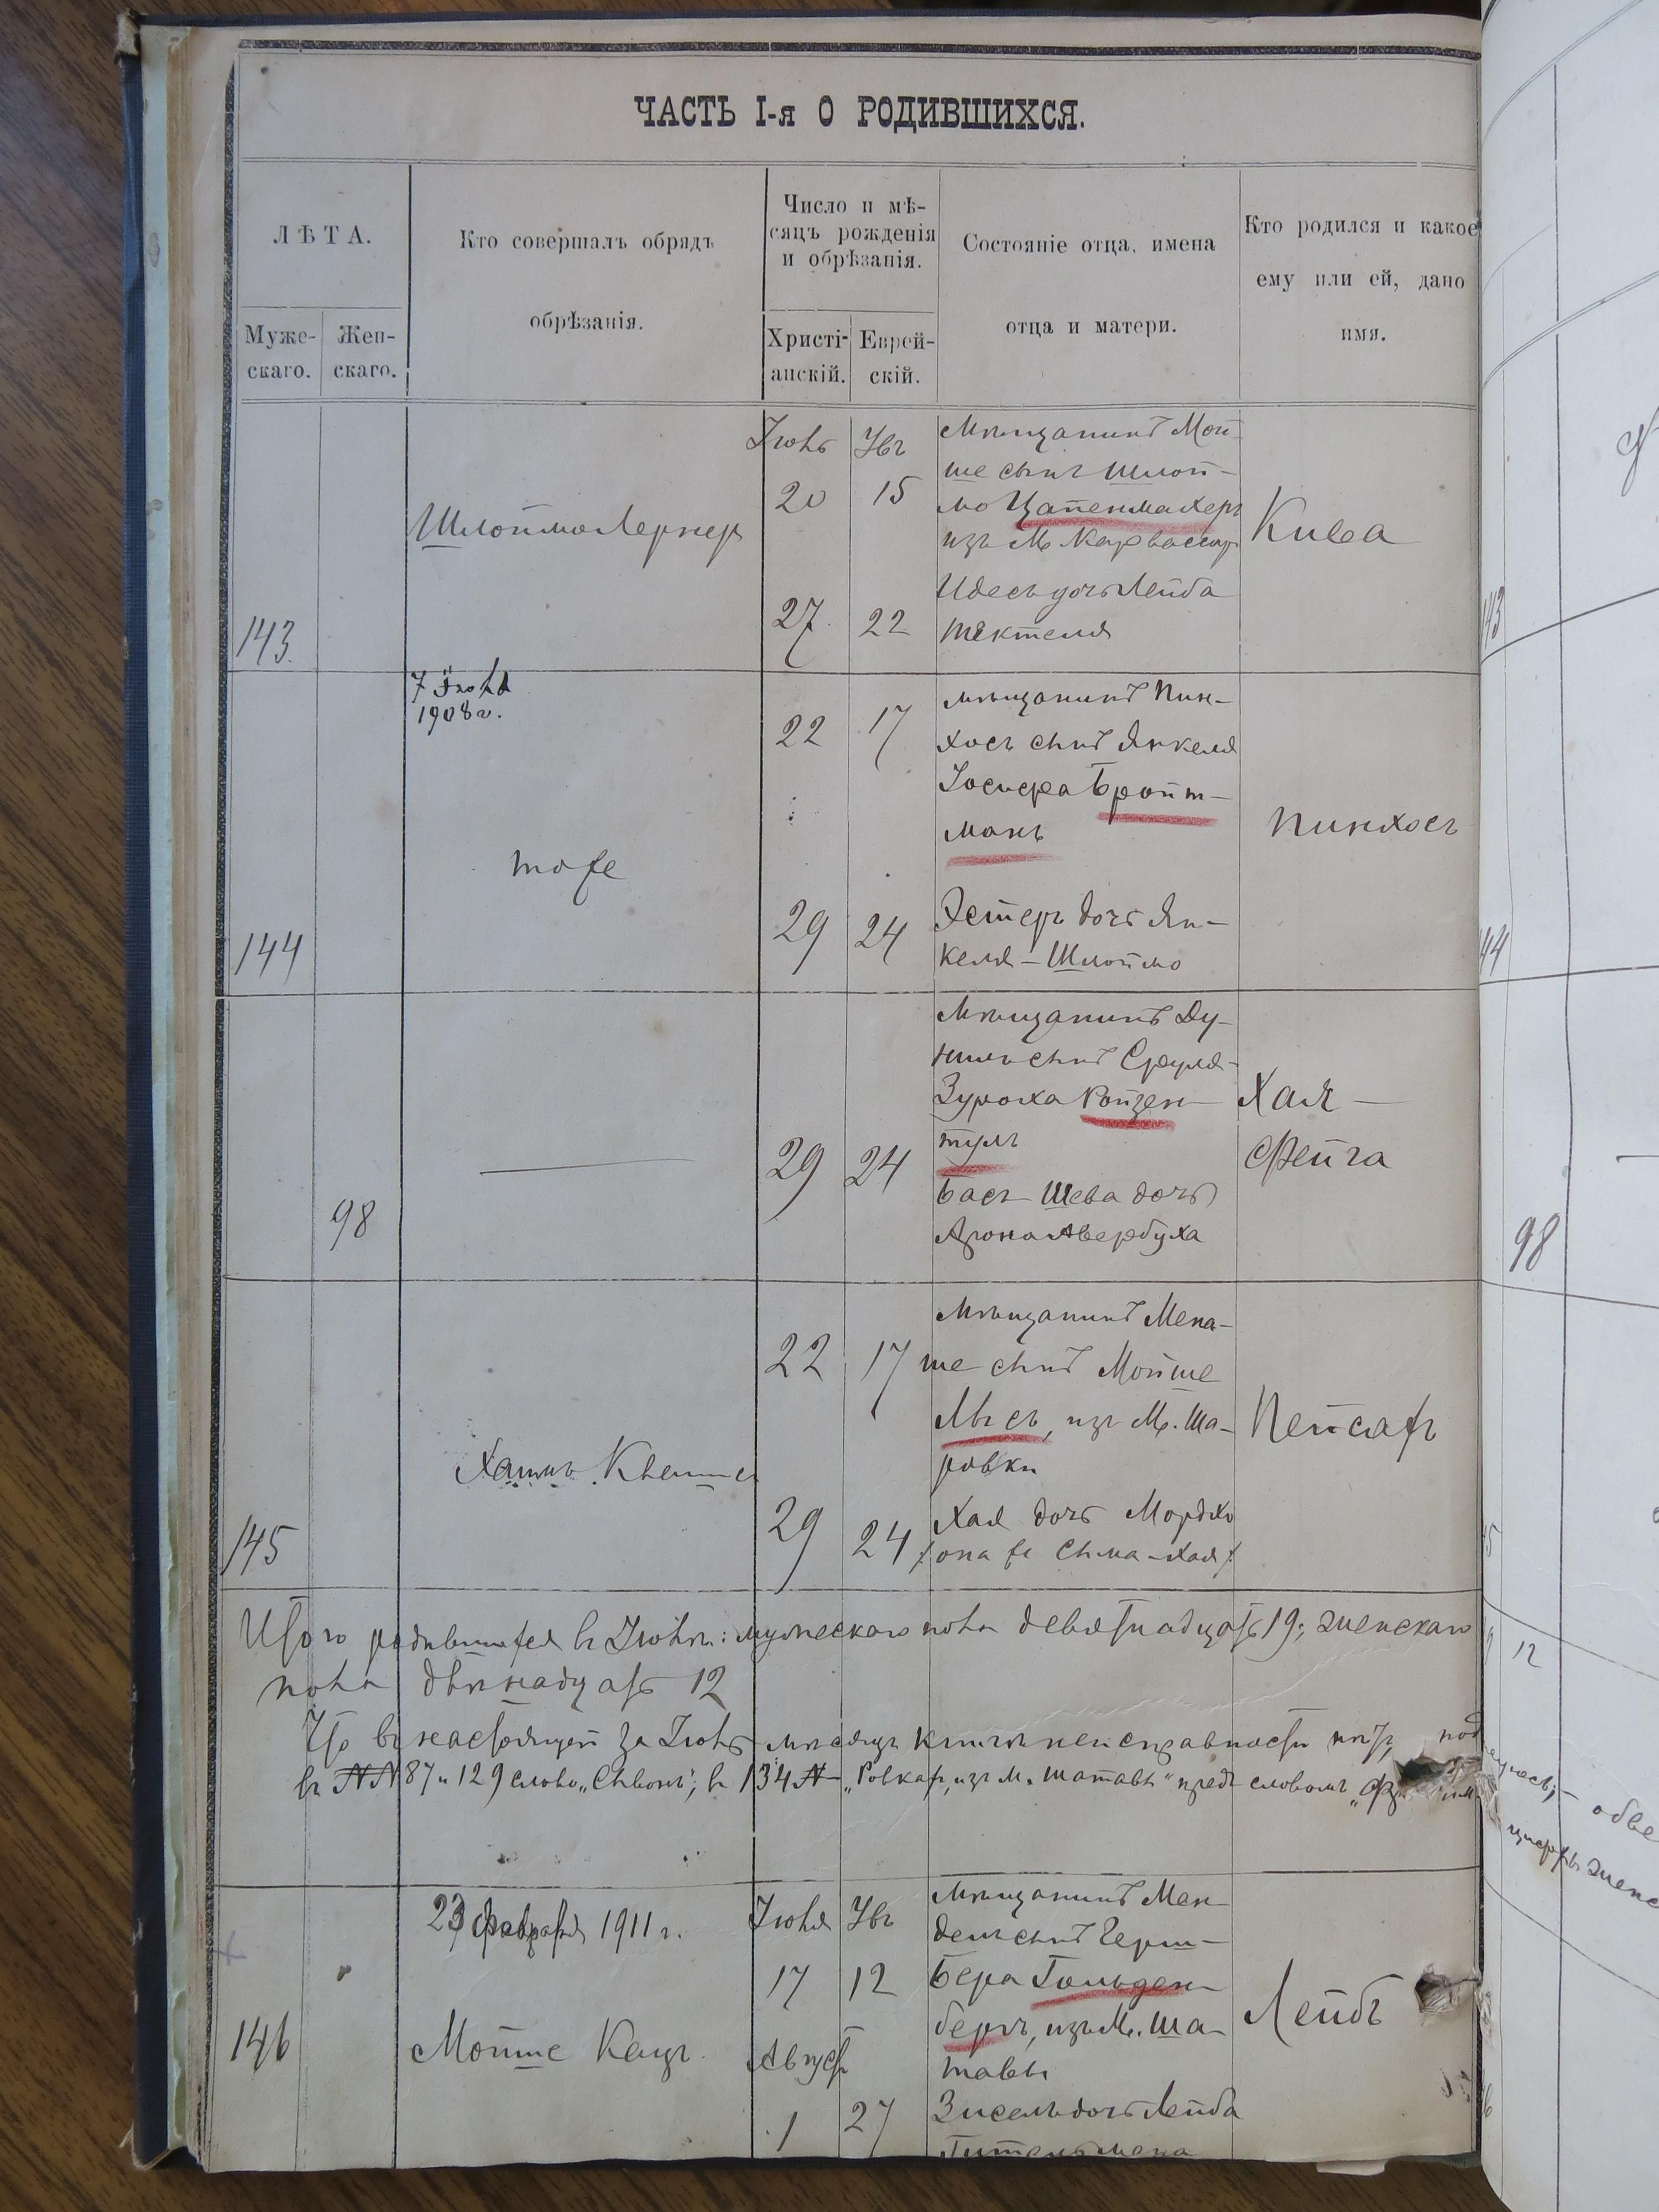 ЧАСТЬ I-я О РОДИВШИХСЯ.
ЛѢТА.
Муже-
скаго.
Жен-
скаго.
Кто совершалъ обрядъ
обрѣзанія.
Число и мѣ-
сяцъ рожденія
и обрѣзанія.
Христі-
анскій.
Еврей-
скій.
Состояніе отца, имена
отца и матери.
Кто родился и какое
ему или ей, дано
имя.
143
Шлойма Лернер
Іюль
20
27
15
22
Мѣщанинъ Мой-
ше сынъ Шлой-
мо Цапенмахеръ
изъ М.
Идесъ дочь Лейба
Кива
143
144
7 Іюля
1908 г.
тоже
22
29
17
24
мѣщанинъ Пин-
хосъ сынъ Янкеля
Іосифа Бройт-
манъ
Эстеръ дочь Ян-
келя-Шлоймо
Пинхосъ
44
98
29
24
Мѣщанинъ Ду-
сынъ Сруля-
Зурoха Ройзен-
Бася-Шева дочь
Арона Авербуха
Хая-
Фейга
98
145
Хаимъ
22
29
17
24
Мѣщанинъ Мена-
ше сынъ Мойше
Лысъ, изъ М. Ша-
ровки
Хая дочь Мордко
/она же Сыма-Хая/
Пейсахъ
Итого родившихся въ Іюлѣ: мужескаго пола девятнадцать 19; женскаго
пола двѣнадцать 12
12
Что въ настоящей за Іюль мѣсяцъ книгѣ неисправности нѣтъ,
въ NN 87 и 129 слово въ 134 N изъ М. Шатавы" предъ словомъ
146
23 февраля 1911 г.
Мойше Кацъ.
Іюля
17
Август
1
12
27
Мѣщанинъ Мен-
дель сынъ Герш-
Бера Гольден-
бергъ, изъ М. Ша-
тавы
Зисель дочь Лейба
Лейбъ